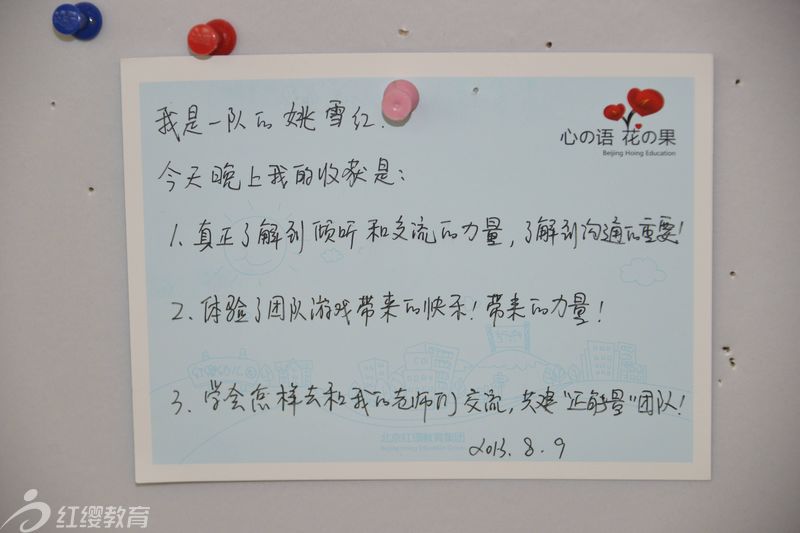 我是一队的姚雪红.
心の语 花の果
Beijing Hoing Education
今天晚上我的收获是：
1、真正了解到倾听和交流的力量，了解到沟通的重要！
2、体验了团队游戏带来的快乐！带来的力量！
3、学会怎样去和我的老师们交流，共建“正能量”团队！
北京红缨教育集团
2013.8.9
红缨教育